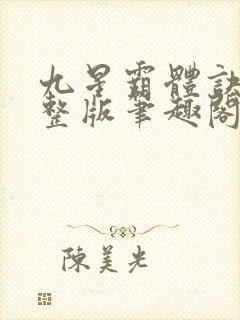 九星霸體訣
整版筆趣閣
陳美光